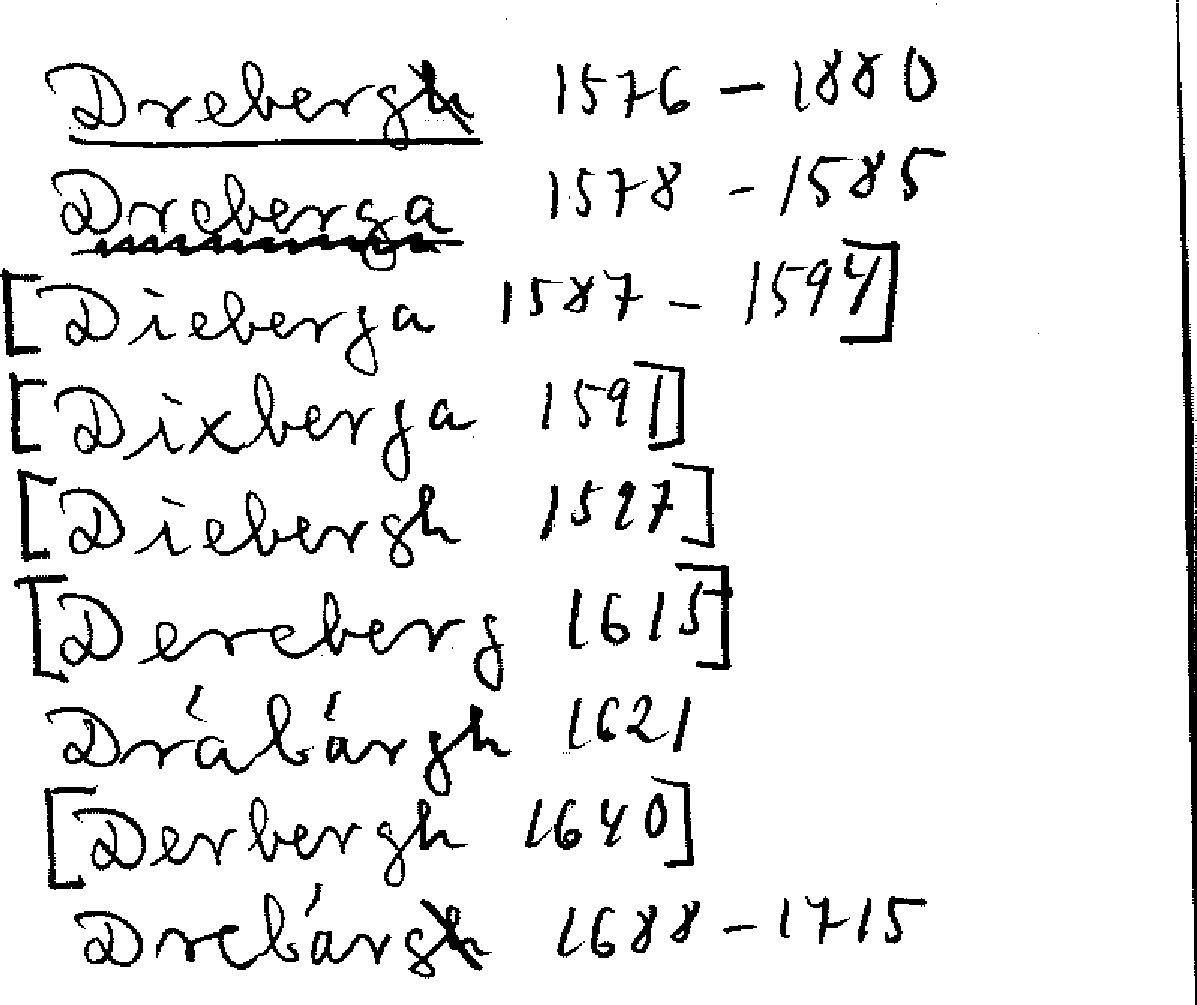 Drebergh 1576 – 1880
Dreberga 1578 – 1585
[Dieberga 1587 – 1594]
[Dixberga 1591]
[Diebergh 1597]
[Dereberg 1615]
Drábárgh 1621
[Derbergh 1640]
Drebárgh 1688 – 1715